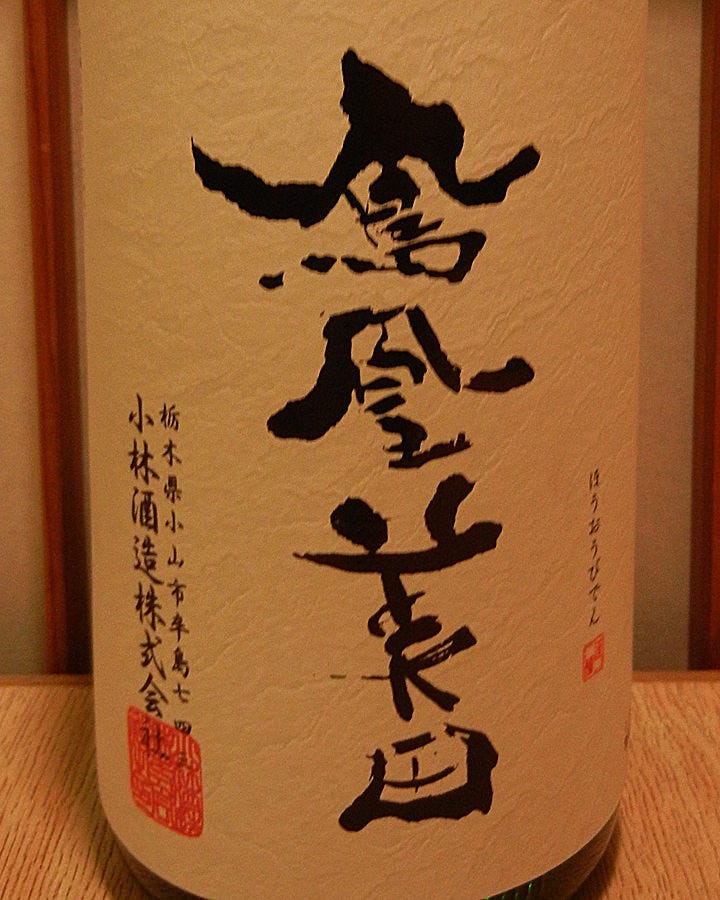 ほうおうびでん
鳳凰美田
栃木県小山市卒島七四三
小林酒造株式会社